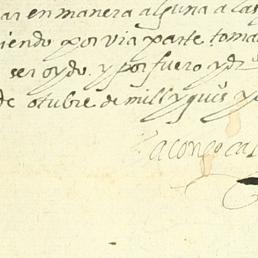 ar en manera alguna a las
iendo por via parte toma
ser oydo. y por fuero y dr
de otubre de mill y quis y